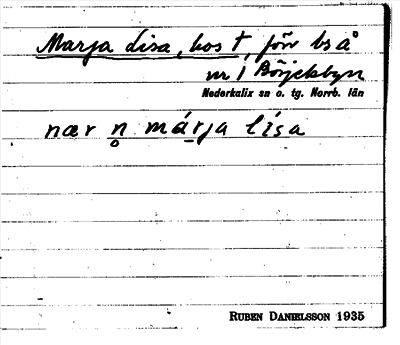 Marja Lisa, hos t, förr bs å
nr 1 Börjelsbyn
Nederkalix sn o. tg. Norrb. län
nær n̥ márja lísa
RUBEN DANIELSSON 1935